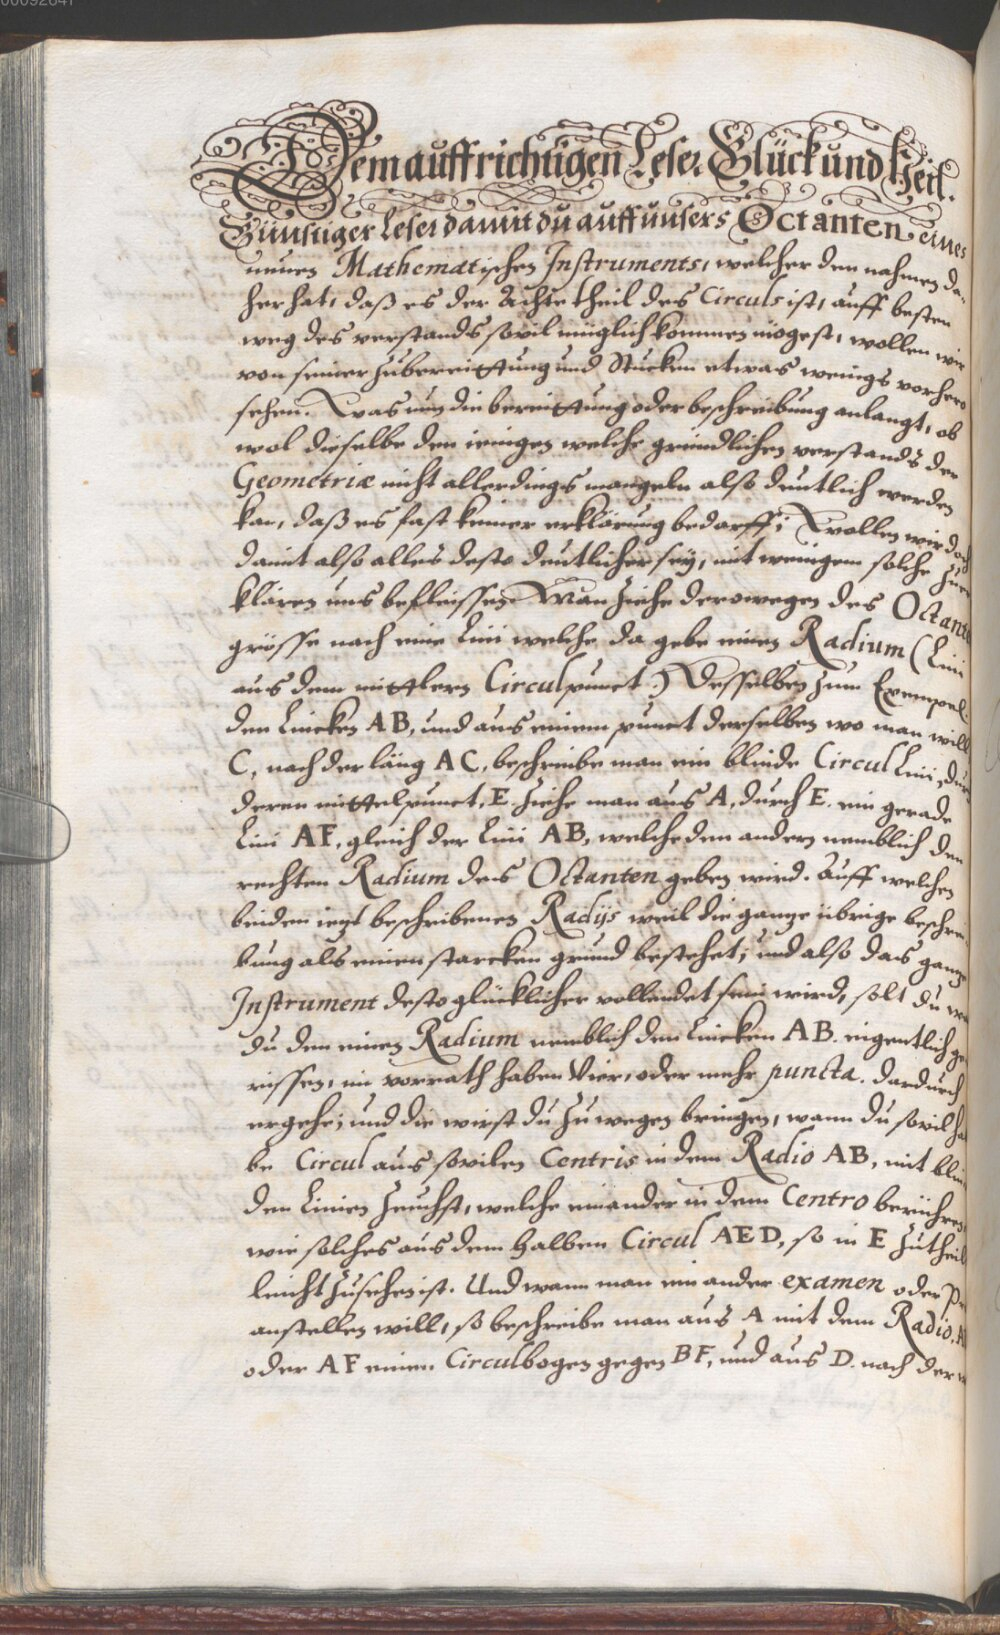 00092641
Dem auffrichtigen Leser Glück und Heil.
Günstiger Leser damit du auff unsers Octanten eines
neuen Mathematischen Instruments, welcher den nahmen da-
her hat, daß es der Achte theil des Circuls ist, auff besten
weg des verstands sovil müglich kommen mögest, wollen wir
von seiner zubereittung und Stucken etwas wenigs vorhero
sehen. Was nun die bereittung oder beschreibung anlangt, ob
wol dieselbe den ienigen welche gründlichen verstands der
Geometriæ nicht allerdings mangeln also deutlich werden
kan, daß es fast keiner erklärung bedarff; Wollen wir doch
damit also alles desto deutlicher sey, mit wenigem solche zuer
klären uns befleissen. Man ziehe derowegen des Octanten
grösse nach eine Lini welche da gebe einen Radium (Lini
aus dem mittlern Circulpunct.) Desselben zum Exempel.
den Lincken AB, und aus einem punct derselben wo man will
C, nach der läng AC, beschreibe man ein blinde Circul Lini, durch
deren mittelpunct, E. ziehe man aus A, durch E. ein gerade
Lini AF, gleich der Lini AB, welche den andern nemblich den
rechten Radium des Octanten geben wird. Auff welchen
beiden iezt beschribenen Radijs weil die ganze übrige beschrei-
bung als einen starcken grund bestehet; und also das ganze
Instrument desto glücklicher vollendet sein wird, solt du wa
du den einen Radium nemblich den Lincken AB. eigentlich ge
rissen, im vorrath haben Vier, oder mehr puncta. dardurch
er gehe; und die wirst du zu wegen bringen, wann du sovil hal
be Circul aus sovilen Centris in dem Radio AB, mit blin
den Linien zeuchst, welche einander in dem Centro berühren,
wie solches aus dem halben Circul AED, so in E zutheil
leicht zusehen ist. Und wann man ein ander examen oder Pr
anstellen will, so beschreibe man aus A mit dem Radio, A
oder AF einen Circulbogen gegen BF, und aus D. nach der